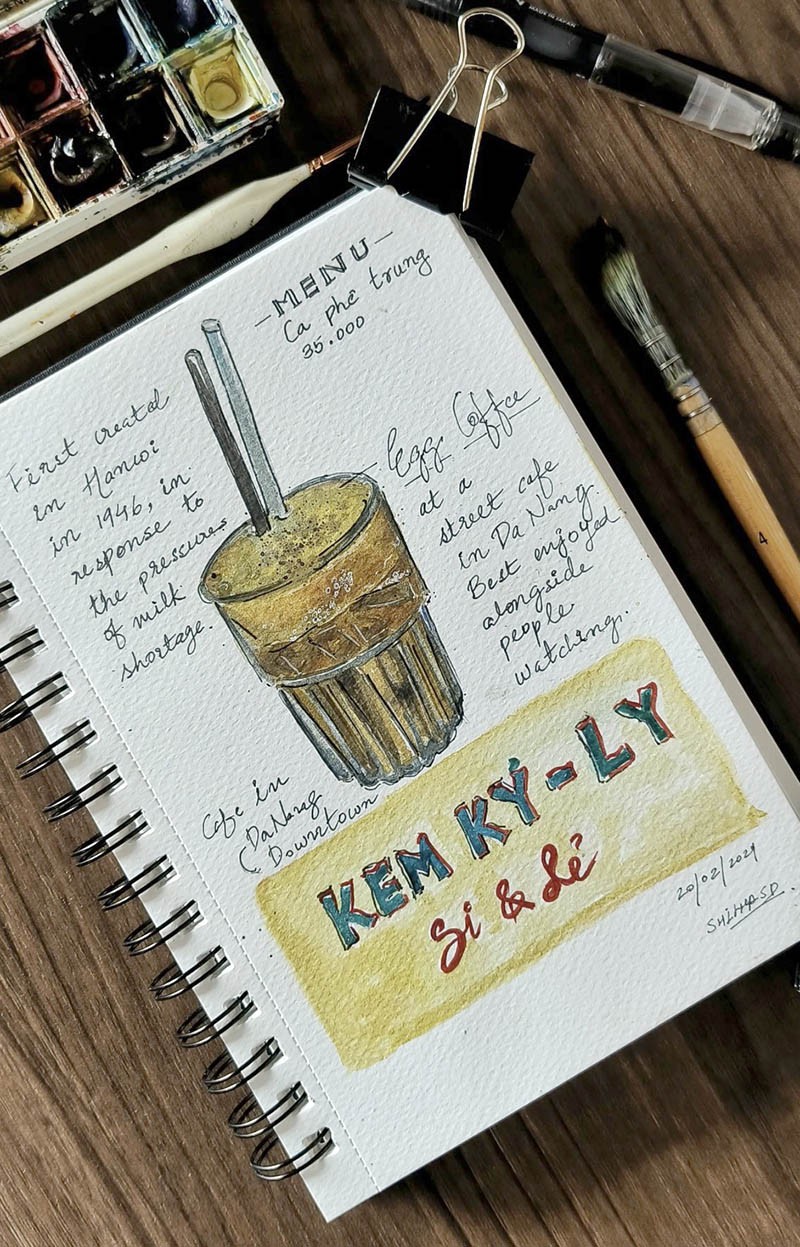 MADE IN JAPAN
-MENU-
Ca phê trung
35.000
First created
in Hanoi
in 1946, in
response to
the pressures
of milk
shortage.
Egg Coffee
at a
street cafe
in Da Nang.
Best enjoyed
alongside
people
watching.
Cafe in
Da Nang
Downtown
KEM KỲ-LY
Sỉ & Lẻ
4